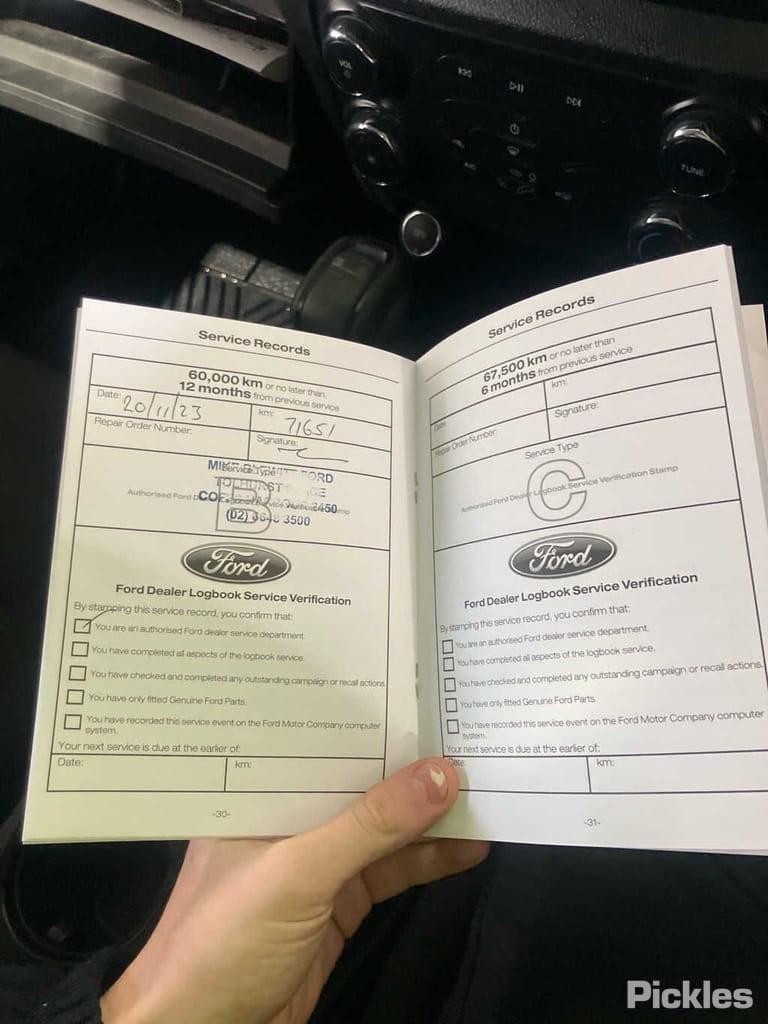 VOL
TUNE
A/C
Service Records
60,000 km or no later than
12 months from previous service
Date: 20/11/23
km: 71651
Repair Order Number:
Signature:
Service Type
B
MIKE FORD
TOLHURST
2450
(02) 3500
Authorised Ford Service Verification Stamp
Ford
Ford Dealer Logbook Service Verification
By stamping this service record, you confirm that:
You are an authorised Ford dealer service department.
You have completed all aspects of the logbook service.
You have checked and completed any outstanding campaign or recall actions
You have only fitted Genuine Ford Parts.
You have recorded this service event on the Ford Motor Company computer
system.
Your next service is due at the earlier of:
Date:
km:
-30-
Service Records
67,500 km or no later than
6 months from previous service
Date:
km:
Repair Order Number:
Signature:
Service Type
C
Authorised Ford Dealer Logbook Service Verification Stamp
Ford
Ford Dealer Logbook Service Verification
By stamping this service record, you confirm that:
You are an authorised Ford dealer service department.
You have completed all aspects of the logbook service.
You have checked and completed any outstanding campaign or recall actions.
You have only fitted Genuine Ford Parts.
You have recorded this service event on the Ford Motor Company computer
system.
Your next service is due at the earlier of:
Date:
km:
-31-
Pickles